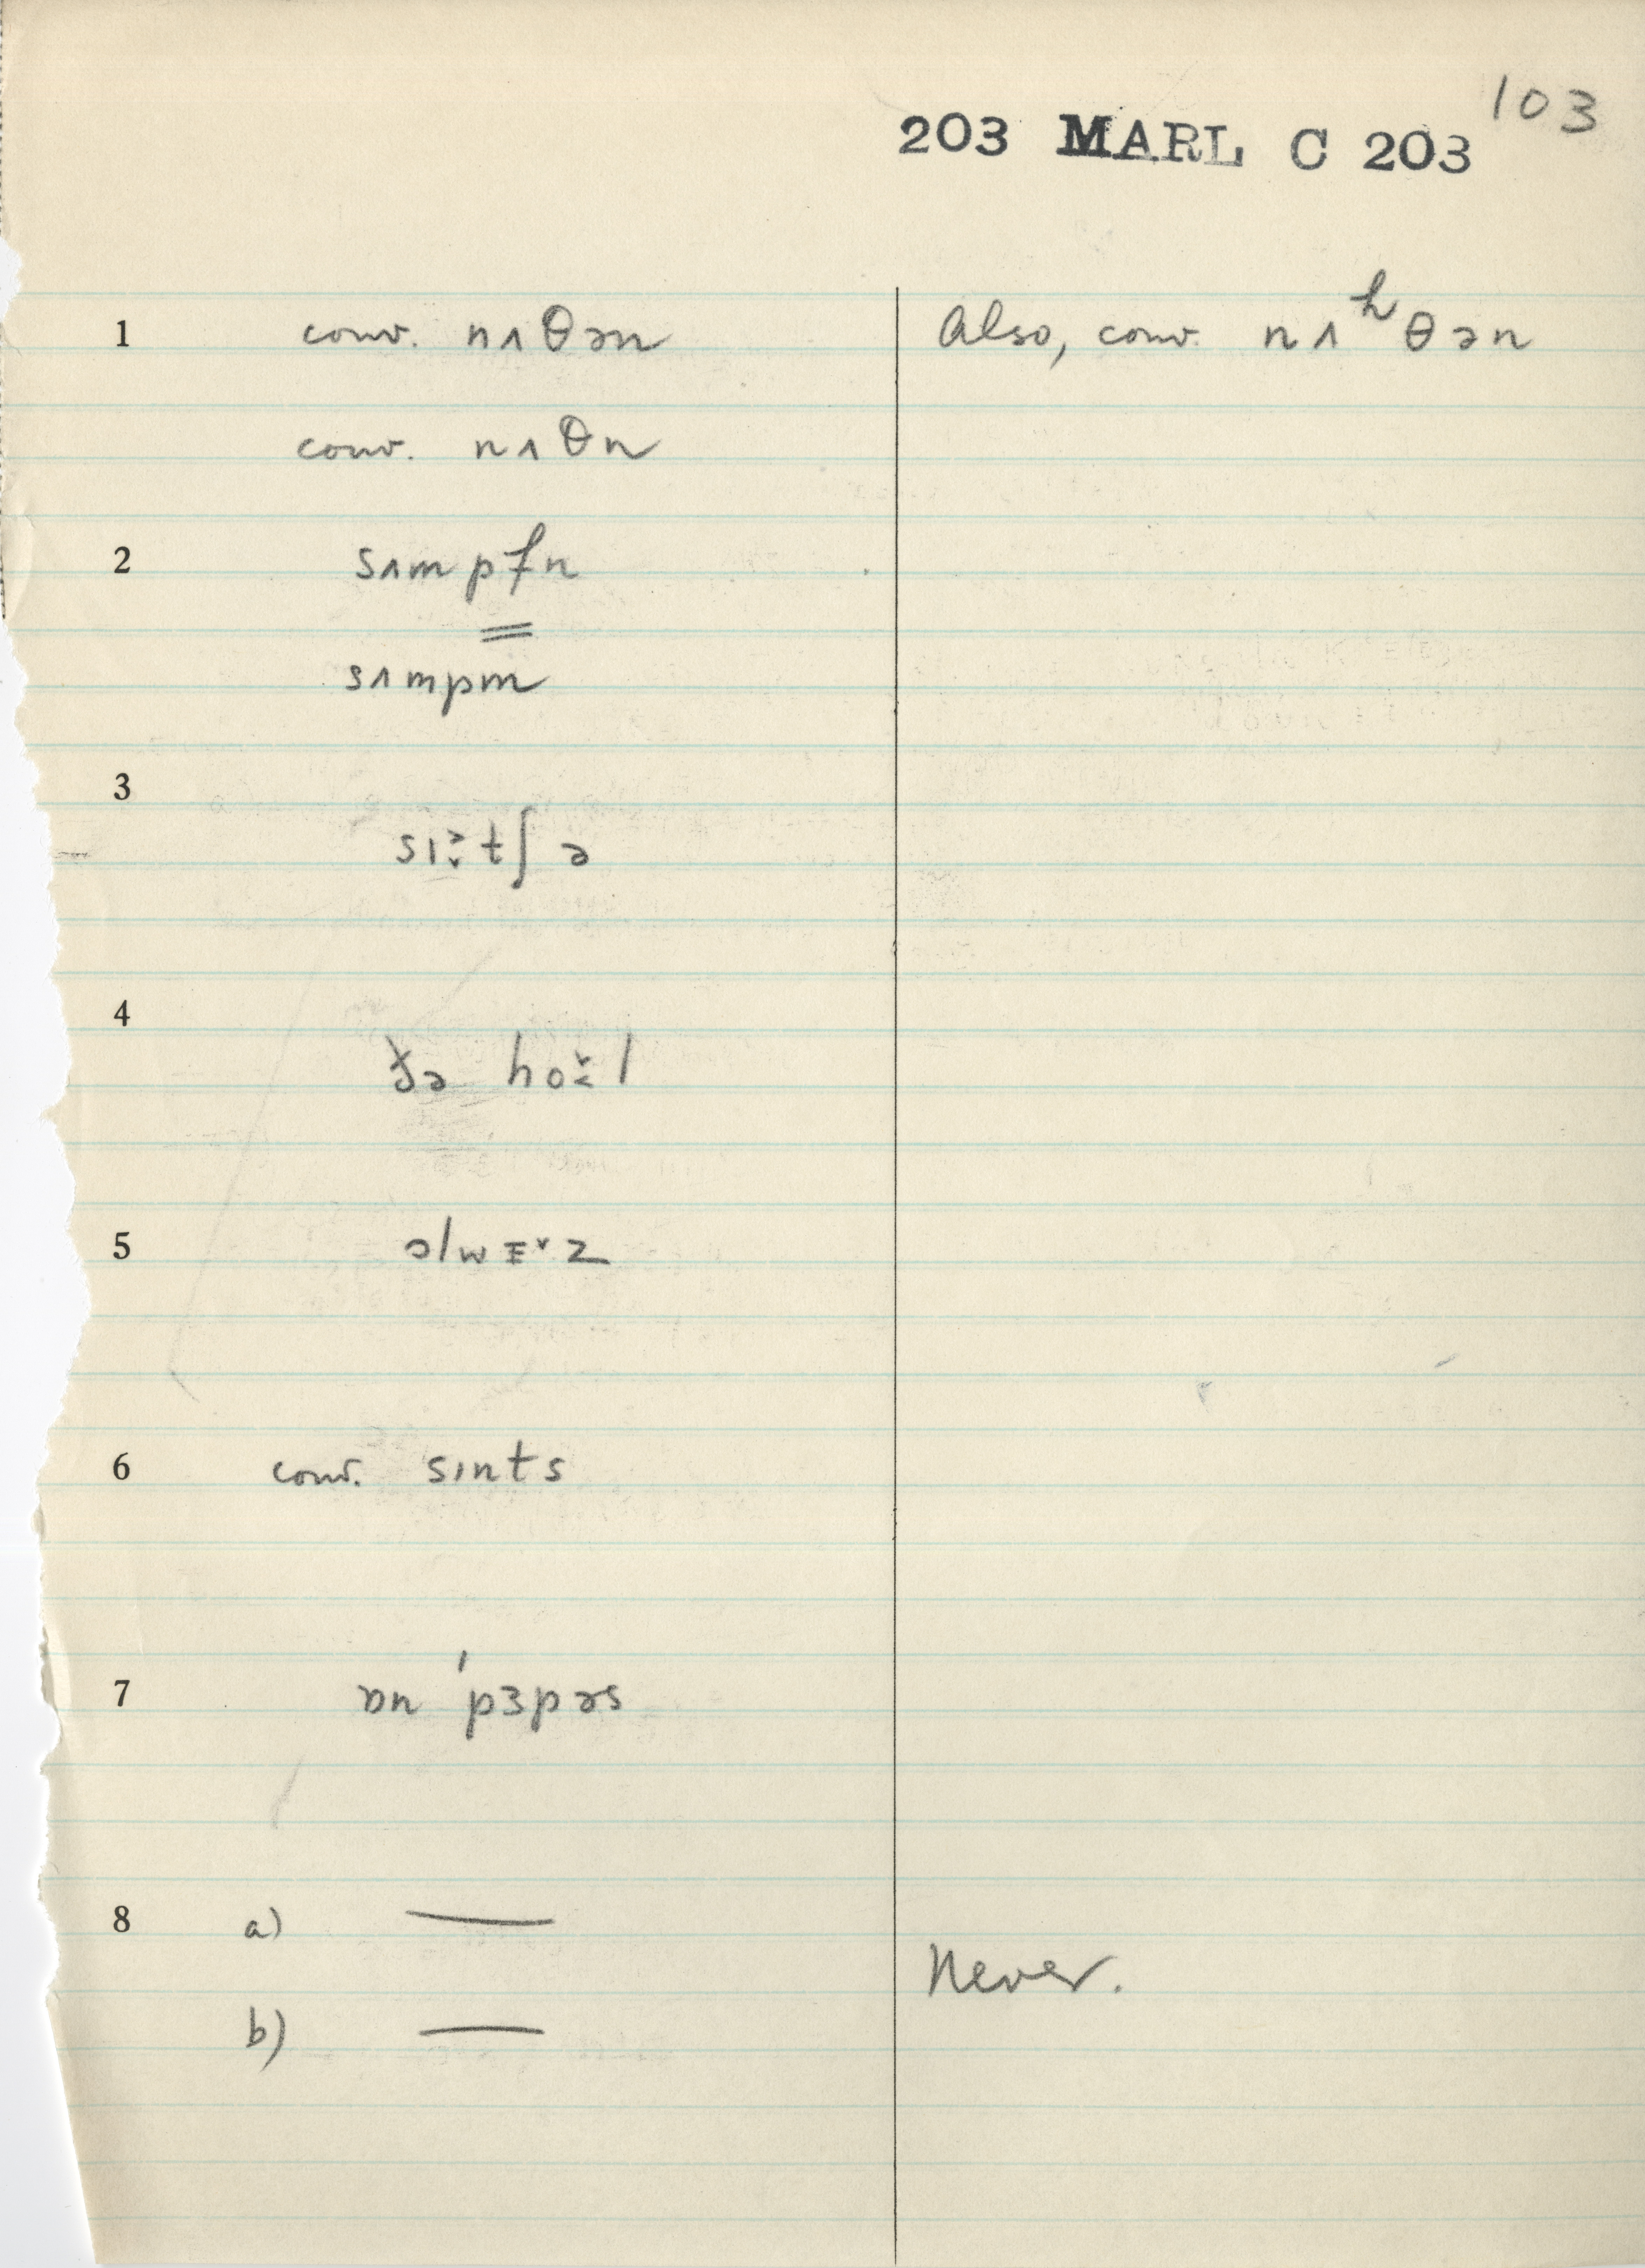 103
203 MARL C 203
1 conv. nʌθən Also, conv. nʌʰθən
conv. nʌθn
2 sʌmpfn
sʌmpm
3
sɪ˃˅tʃə
4
ðə ho˅˂l
5 ɔlwE˅z
6 conv. sɪnts
7 ɒn 'pɜpəs
8 a) —
Never.
b) —